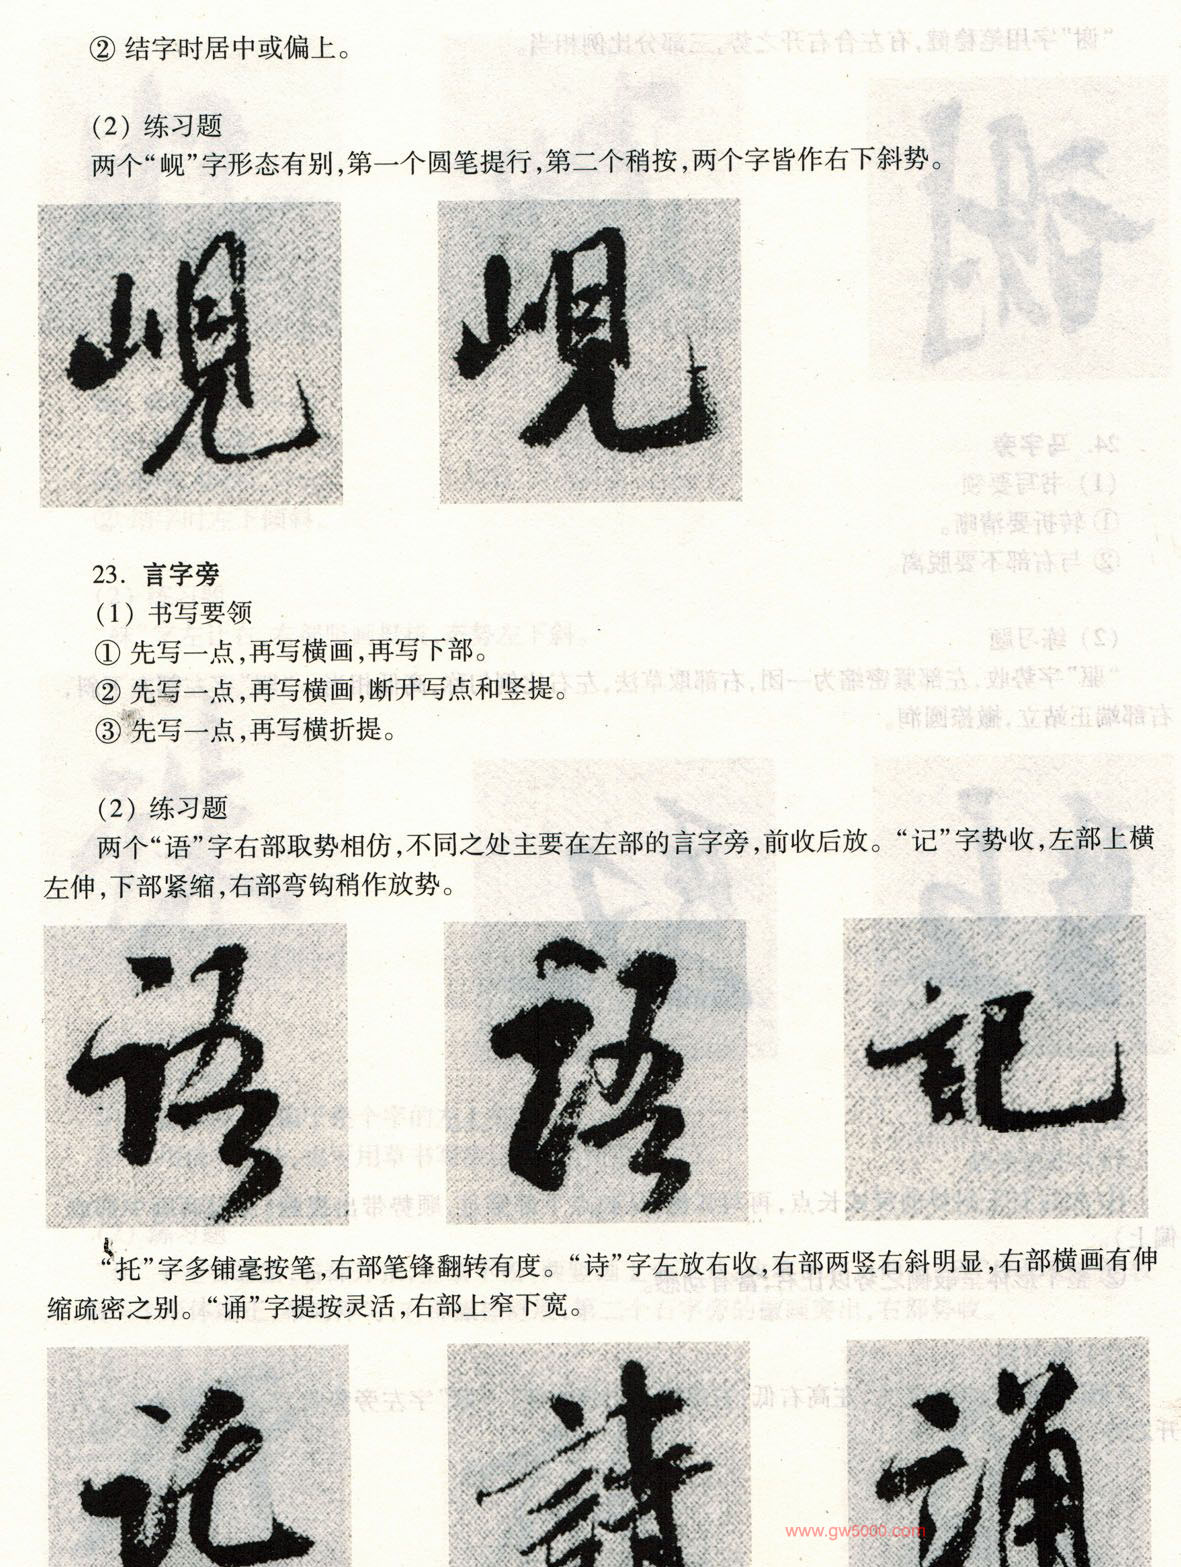 ② 结字时居中或偏上。
(2) 练习题
两个“岘”字形态有别,第一个圆笔提行,第二个稍按,两个字皆作右下斜势。
峴 峴
23. 言字旁
(1) 书写要领
① 先写一点,再写横画,再写下部。
② 先写一点,再写横画,断开写点和竖提。
③ 先写一点,再写横折提。
(2) 练习题
两个“语”字右部取势相仿,不同之处主要在左部的言字旁,前收后放。“记”字势收,左部上横
左伸,下部紧缩,右部弯钩稍作放势。
語 語 記
“托”字多铺毫按笔,右部笔锋翻转有度。“诗”字左放右收,右部两竖右斜明显,右部横画有伸
缩疏密之别。“诵”字提按灵活,右部上窄下宽。
託 詩 誦
www.gw5000.com